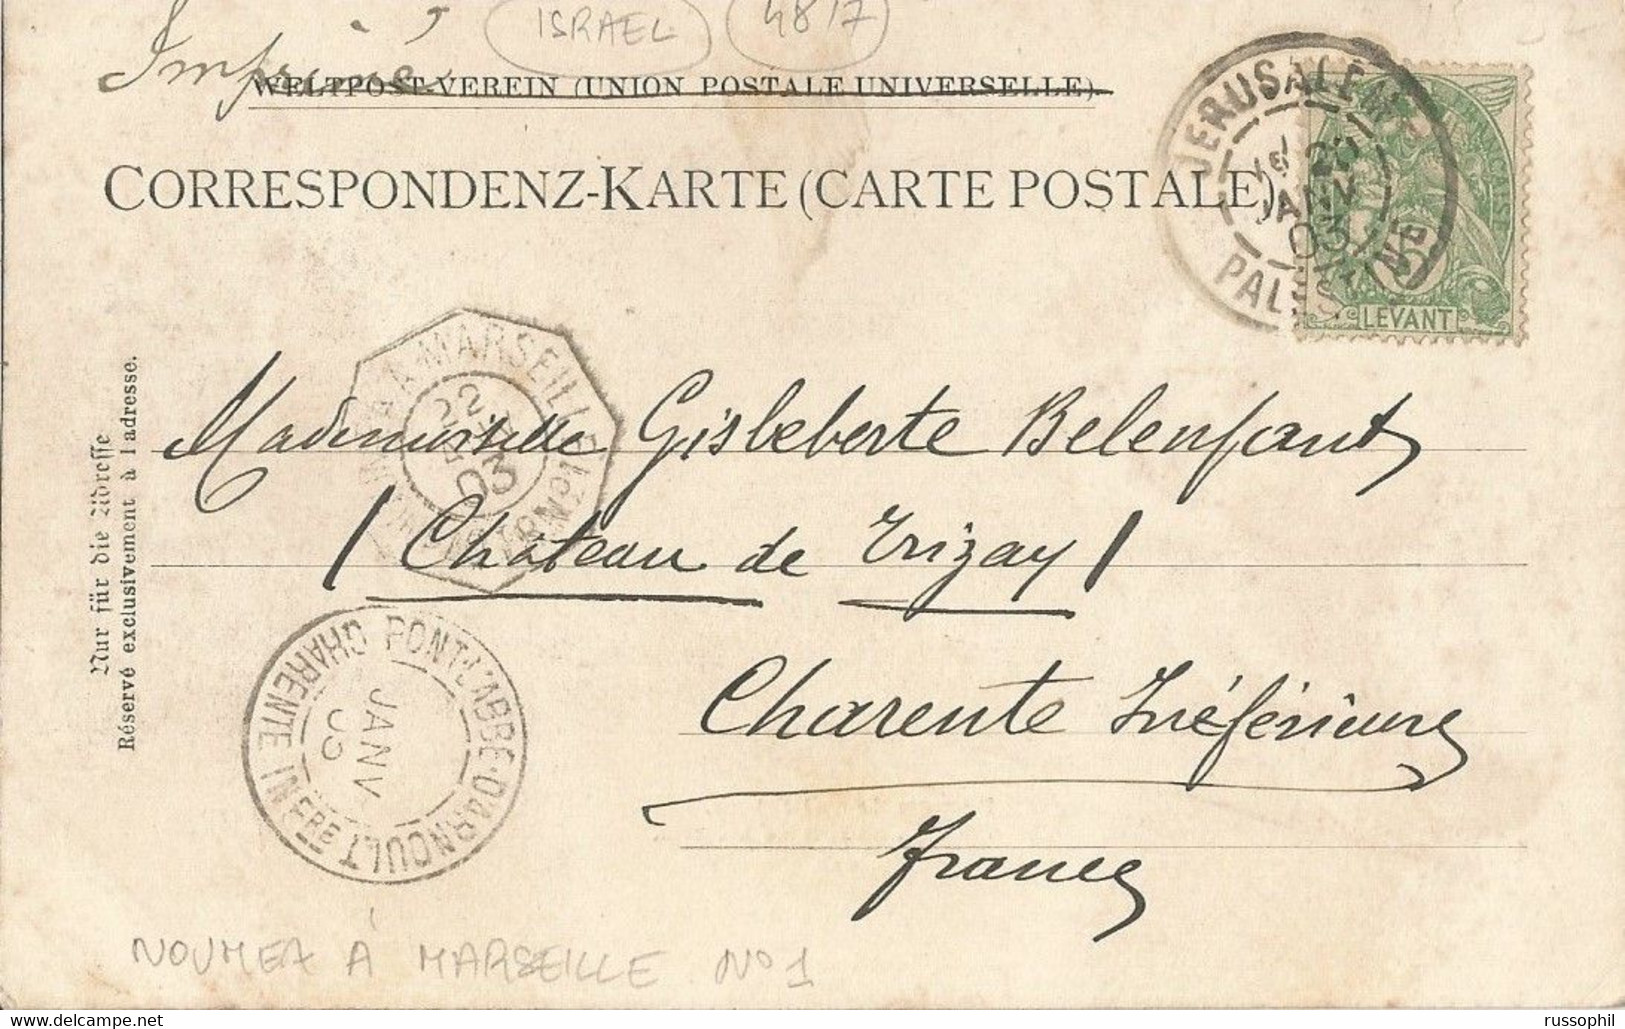 ISRAEL
4817
Imprimé
WELTPOST-VEREIN (UNION POSTALE UNIVERSELLE).
CORRESPONDENZ-KARTE (CARTE POSTALE)
JERUSALEM
20
JANV
03
PALESTINE
LEVANT
A MARSEILLE
22
03
Nur für die Adresse
Réservé exclusivement à l'adresse.
Mademoiselle Gisleberte Belenfant
(Château de Trizay)
Charente Inférieure
France
PONT-L'ABBÉ-D'ARNOULT
JANV
CHARENTE INFRE
NOUMEA À MARSEILLE No 1
russophil